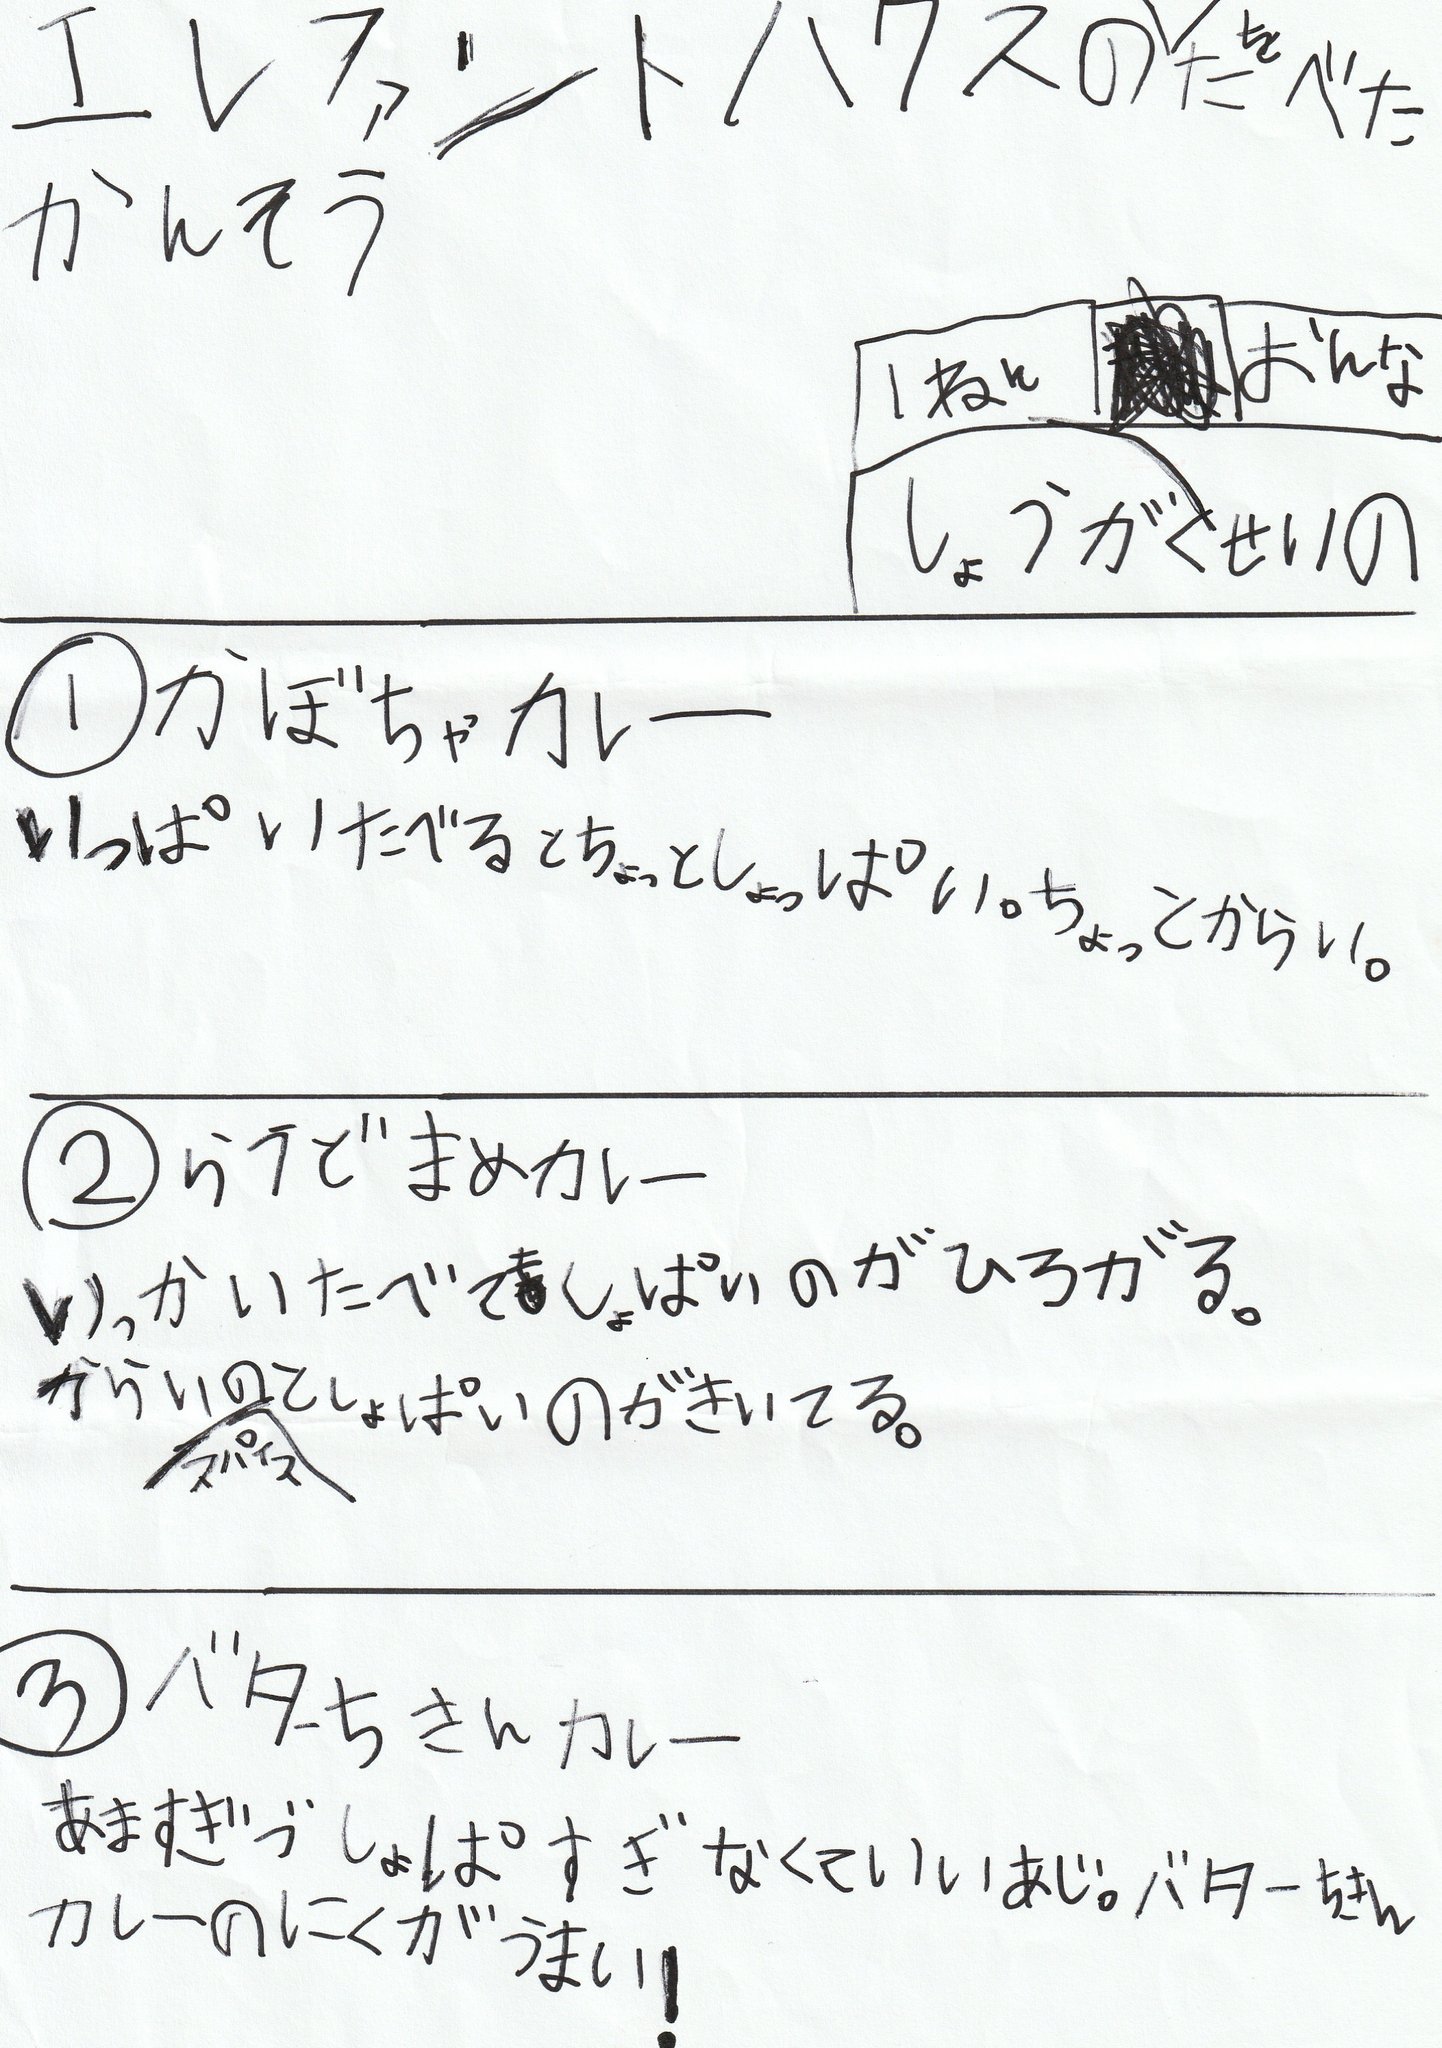 エレファントハウスのをたべた
かんそう
1ねん おんな
しょうがくせいの
①かぼちゃカレー
いっぱいたべるとちょっとしょっぱい。ちょっとからい。
②らうどまめカレー
いっかいたべてもしょぱいのがひろがる。
からいのとしょぱいのがきいてる。
スパイス
③バターちきんカレー
あますぎづしょぱすぎなくていいあじ。バターちきん
カレーのにくがうまい!